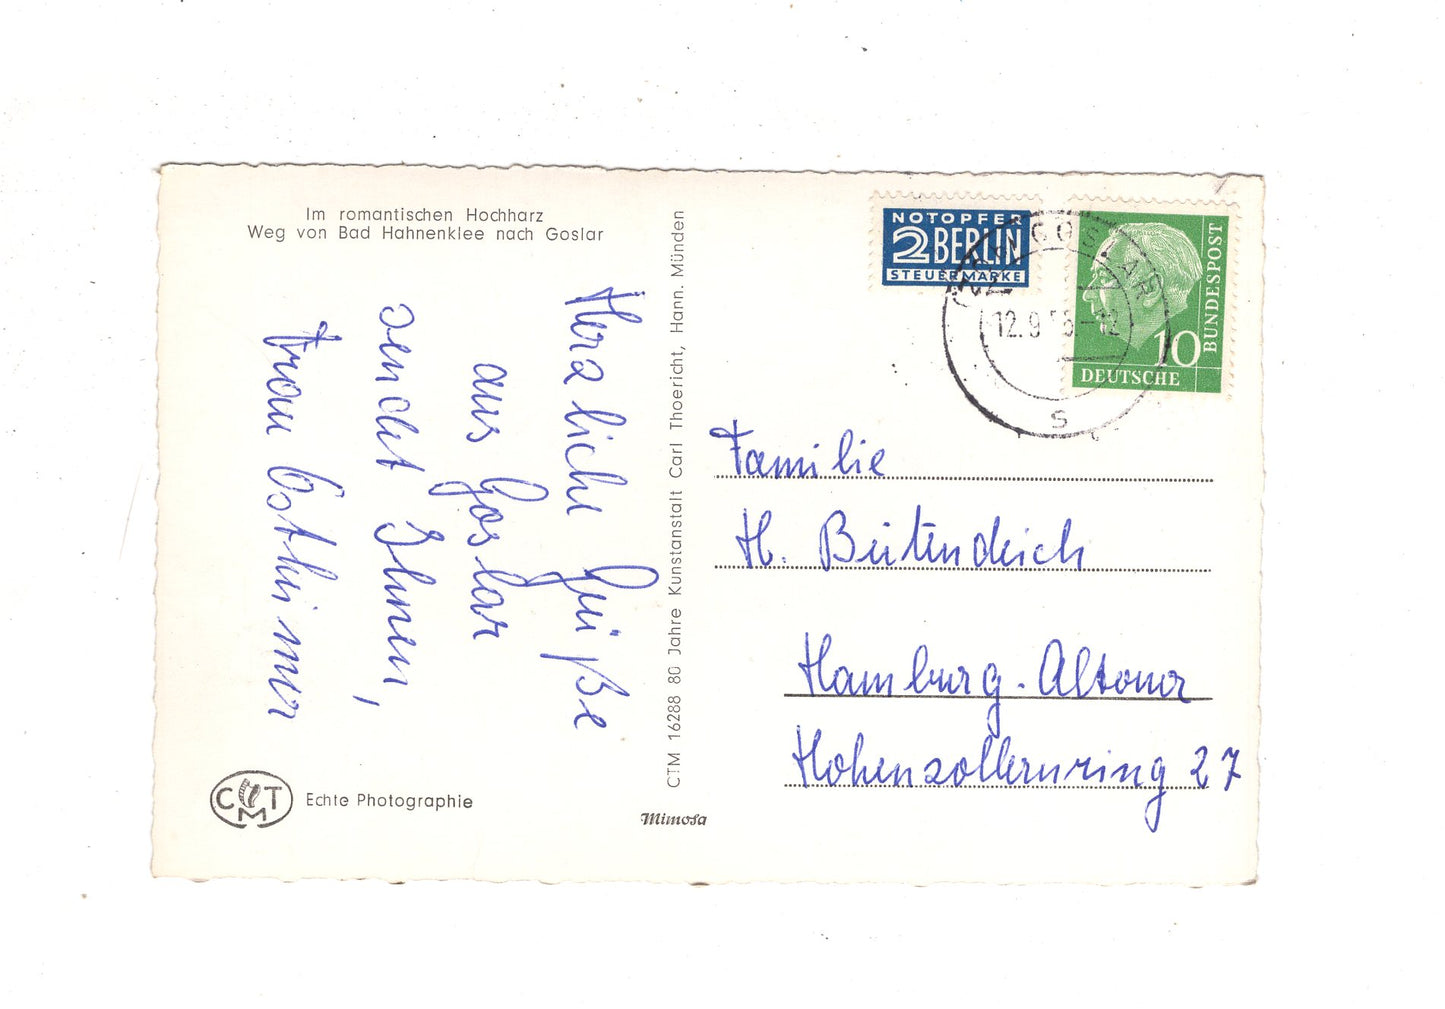 Im romantischen Hochharz
Weg von Bad Hahnenklee nach Goslar
Herzliche Grüße
aus Goslar
sendet Ihnen,
Frau
CTM
Echte Photographie
CTM 16288 80 Jahre Kunstanstalt Carl Thoericht, Hann. Münden
Mimosa
NOTOPFER
2 BERLIN
STEUERMARKE
GOSLAR
12.9
s
10
DEUTSCHE
BUNDESPOST
Familie
H. Beitendeich
Hamburg-Altona
Hohenzollernring 27